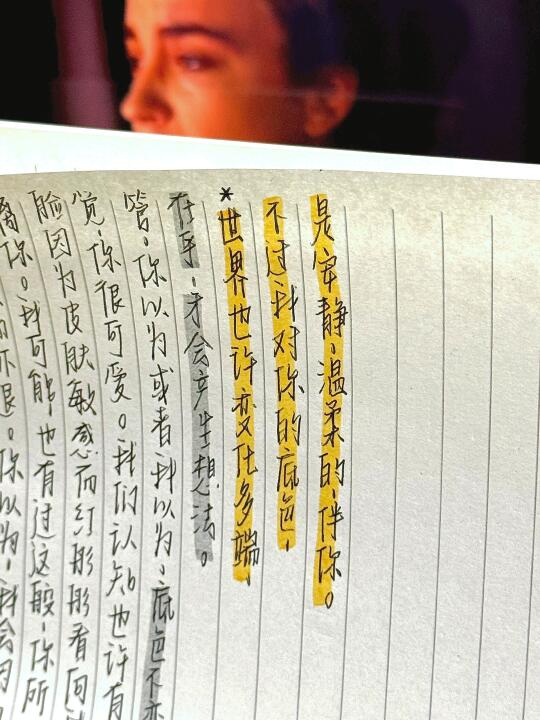 不退。你以为,我会因
你。我可能也有过这般,你所
脸因为皮肤敏感而红彤彤看向
觉,你很可爱。我们认知也许有
管,你以为或者我以为,底色不变
在乎,才会产生想法。
*世界也许变化多端,
不过我对你的底色,
是安静,温柔的,伴你。